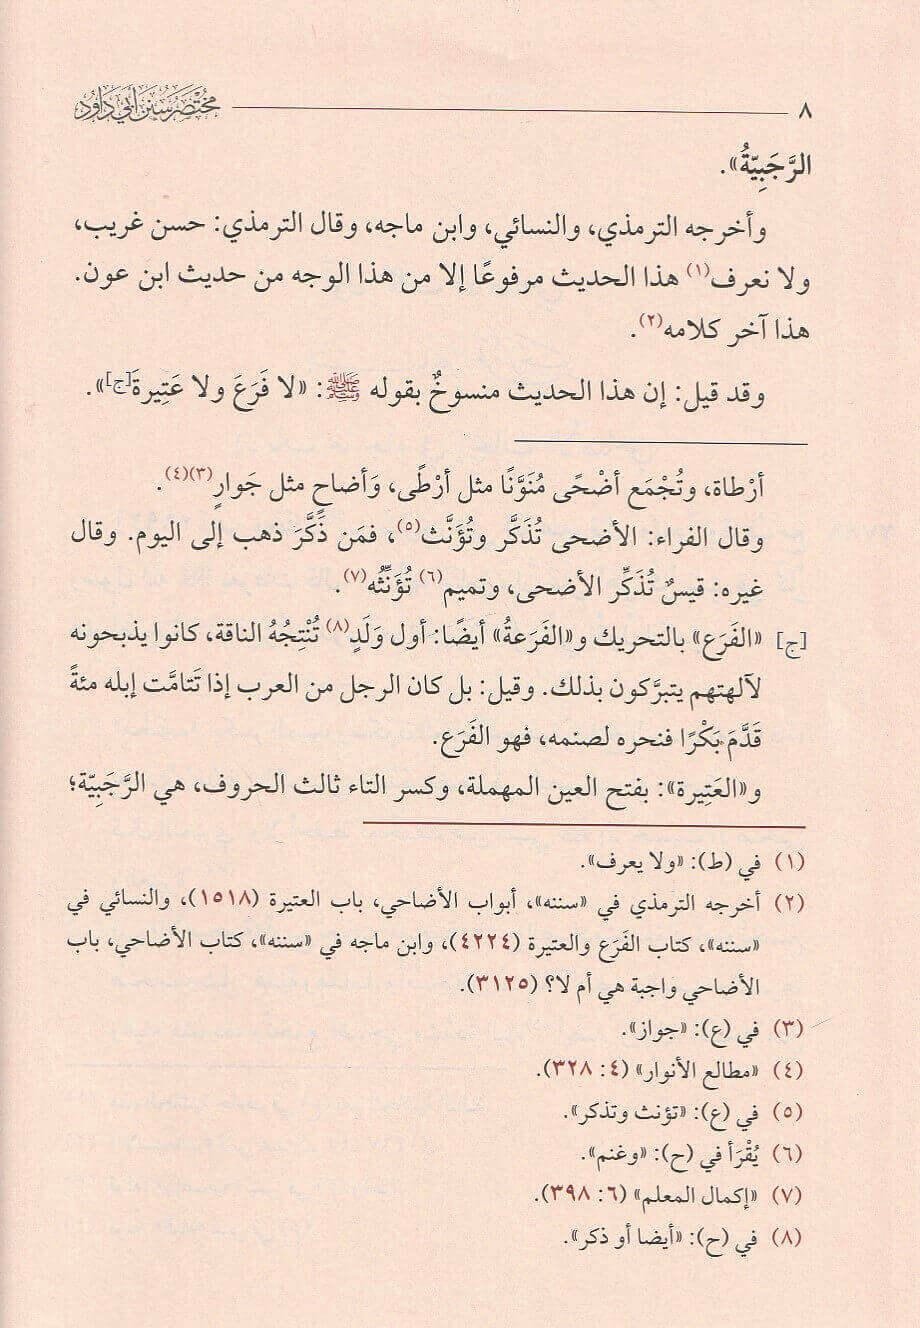 ٨ مختصر سنن أبي داود
الرَّجَبِيّةُ».
وأخرجه الترمذي، والنسائي، وابن ماجه، وقال الترمذي: حسن غريب،
ولا نعرف(١) هذا الحديث مرفوعًا إلا من هذا الوجه من حديث ابن عون.
هذا آخر كلامه(٢).
وقد قيل: إن هذا الحديث منسوخٌ بقوله ﷺ: «لا فَرَعَ ولا عَتِيرةَ[ج]».
أرْطاة، وتُجْمَع أضْحًى مُنَوَّنًا مثل أرْطًى، وَأضاحٍ مثل جَوارٍ(٣)(٤).
وقال الفراء: الأضحى تُذَكَّر وتُؤَنَّث(٥)، فمَن ذَكَّرَ ذهب إلى اليوم. وقال
غيره: قيسٌ تُذَكِّر الأضحى، وتميم(٦) تُؤَنِّثُه(٧).
[ج] «الفَرَع» بالتحريك و«الفَرَعةُ» أيضًا: أول وَلَدٍ(٨) تُنْتِجُهُ الناقة، كانوا يذبحونه
لآلهتهم يتبرَّكون بذلك. وقيل: بل كان الرجل من العرب إذا تَتامَّت إبله مئةً
قَدَّمَ بَكْرًا فنحره لصنمه، فهو الفَرَع.
و«العَتِيرة»: بفتح العين المهملة، وكسر التاء ثالث الحروف، هي الرَّجَبِيّة؛
(١) في (ط): «ولا يعرف».
(٢) أخرجه الترمذي في «سننه»، أبواب الأضاحي، باب العتيرة (١٥١٨)، والنسائي في
«سننه»، كتاب الفَرَع والعتيرة (٤٢٢٤)، وابن ماجه في «سننه»، كتاب الأضاحي، باب
الأضاحي واجبة هي أم لا؟ (٣١٢٥).
(٣) في (ع): «جواز».
(٤) «مطالع الأنوار» (٤: ٣٢٨).
(٥) في (ع): «تؤنث وتذكر».
(٦) يُقْرَأ في (ح): «وغنم».
(٧) «إكمال المعلم» (٦: ٣٩٨).
(٨) في (ح): «أيضا أو ذكر».